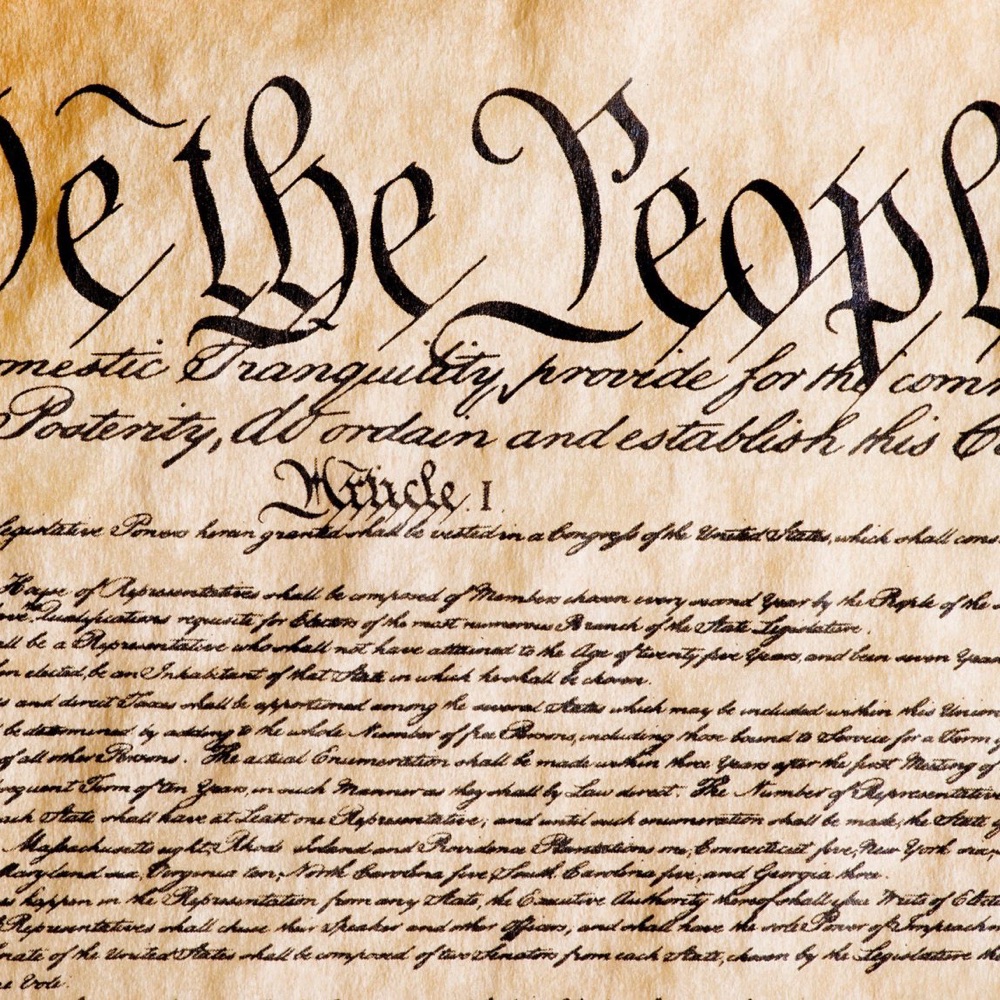 We the People
omestic Tranquility, provide for the com
Posterity, do ordain and establish this Co
Article. I.
legislative Powers herein granted shall be vested in a Congress of the United States, which shall cons
House of Representatives shall be composed of Members chosen every second Year by the People of the s
the Qualifications requisite for Electors of the most numerous Branch of the State Legislature.
ll be a Representative who shall not have attained to the Age of twenty five Years, and been seven Years
en elected, be an Inhabitant of that State in which he shall be chosen.
s and direct Taxes shall be apportioned among the several States which may be included within this Union
be determined by adding to the whole Number of free Persons, including those bound to Service for a Term of
of all other Persons. The actual Enumeration shall be made within three Years after the first Meeting of
sequent Term of ten Years, in such Manner as they shall by Law direct. The Number of Representatives
ach State shall have at Least one Representative; and until such enumeration shall be made, the State of
Massachusetts eight, Rhode Island and Providence Plantations one, Connecticut five, New York six,
Maryland six, Virginia ten, North Carolina five, South Carolina five, and Georgia three.
es happen in the Representation from any State, the Executive Authority thereof shall issue Writs of Elect
Representatives shall chuse their Speaker and other Officers; and shall have the sole Power of Impeachm
nate of the United States shall be composed of two Senators from each State, chosen by the Legislature th
ne Vote.